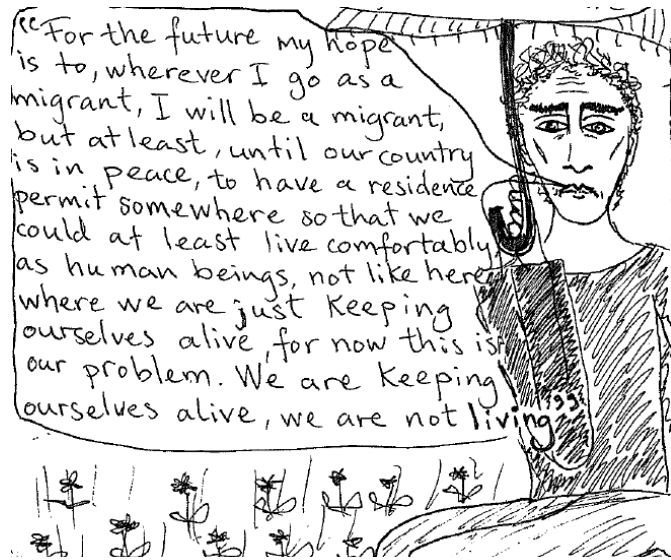 “For the future my hope
is to, wherever I go as a
migrant, I will be a migrant,
but at least, until our country
is in peace, to have a residence
permit somewhere so that we
could at least live comfortably,
as human beings, not like here
where we are just keeping
ourselves alive, for now this is
our problem. We are keeping
ourselves alive, we are not living”